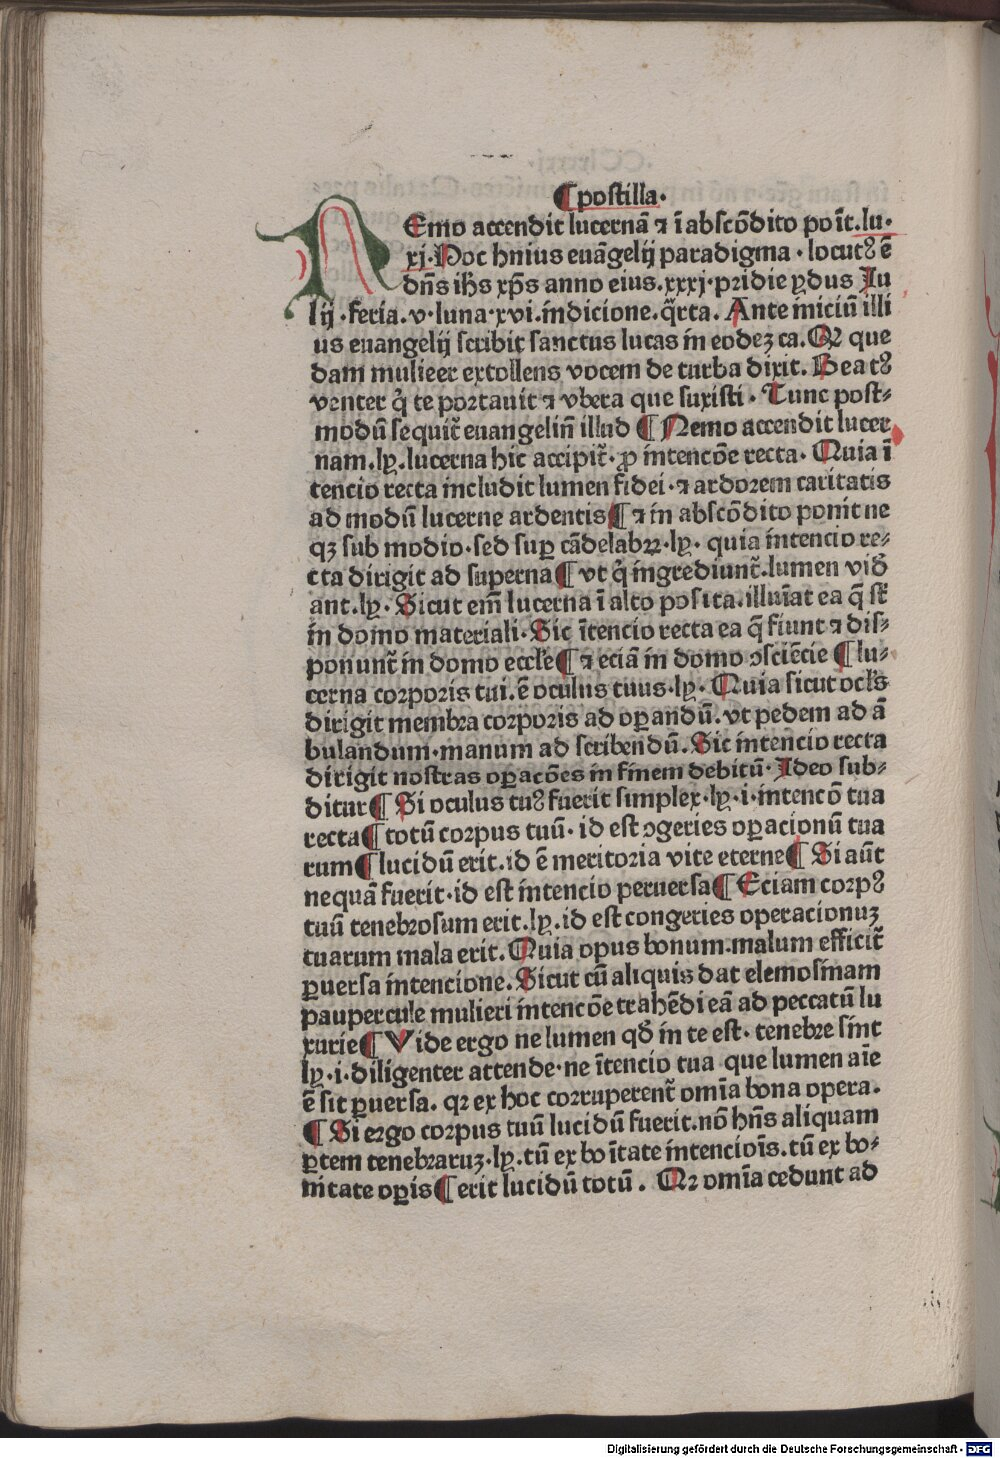 ¶ postilla·
NEmo accendit lucernā ⁊ ī abscōdito poīt. lu·
xj· Hoc huius euāgelij paradigma · locutꝰ ē
dn̄s ihs̄ xp̄s anno eius. xxxj· pridie ydus Iu
lij · feria. v· luna· xvi. indicione. q̄rta. Ante iniciū illi
us euangelij scribit sanctus lucas in eodeʒ ca. Qꝛ que
dam mulieer extollens vocem de turba dixit. Beatꝰ
venter q̄ te portauit ⁊ vbera que suxisti · Tunc post⸗
modū sequit̄ euangeliū illud ¶ Nemo accendit lucer
nam. ly. lucerna hic accipit̄· ꝓ intencōe recta· Quia ī
tencio recta includit lumen fidei · ⁊ ardorem caritatis
ad modū lucerne ardentis ¶ ⁊ in abscōdito ponit ne
qʒ sub modio· sed suꝑ cādelabꝝ· ly· quia intencio re⸗
cta dirigit ad superna ¶ vt q̄ ingrediunt̄. lumen vid̄
ant. ly· Sicut em̄ lucerna ī alto posita. illuīat ea q̄ st̄
in domo materiali· Sic ītencio recta ea q̄ fiunt ⁊ dis⸗
ponunt̄ in domo eccl̄e ¶ ⁊ eciā in domo ꝯsciēcie ¶ lu⸗
cerna corporis tui. ē oculus tuus· ly· Quia sicut ocl̄s
dirigit membra corporis ad oꝑandū. vt pedem ad ā
bulandum· manum ad scribendū. Sic intencio recta
dirigit nostras oꝑacōes in finem debitū· Ideo sub⸗
ditur ¶ Si oculus tuꝰ fuerit simplex· ly· i· intencō tua
recta ¶ totū corpus tuū· id est ꝯgeries oꝑacionū tua
rum ¶ lucidū erit. id ē meritoria vite eterne ¶ Si aūt
nequā fuerit· id est intencio peruersa ¶ Eciam corpꝰ
tuū tenebrosum erit. ly. id est congeries operacionuʒ
tuarum mala erit. Quia opus bonum. malum efficit̄
ꝑuersa intencione. Sicut cū aliquis dat elemosinam
paupercule mulieri intencōe trahēdi eā ad peccatū lu
xurie ¶ Vide ergo ne lumen qd̄ in te est· tenebre sint
ly· i· diligenter attende· ne ītencio tua que lumen aīe
ē sit ꝑuersa. qꝛ ex hoc corruperent̄ omīa bona opera.
¶ Si ergo corpus tuū lucidū fuerit. nō hn̄s aliquam
ꝑtem tenebraruʒ· ly. tū ex boītate intencioīs. tū ex bo⸗
nitate oꝑis ¶ erit lucidū totū . Qꝛ omīa cedunt ad
Digitalisierung gefördert durch die Deutsche Forschungsgemeinschaft · DFG